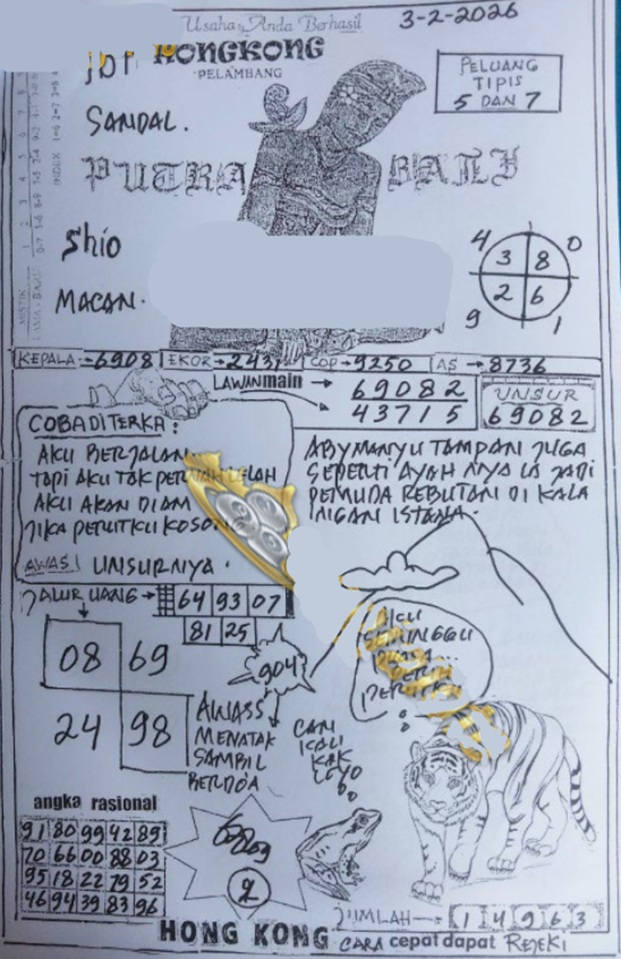 Usaha Anda Berhasil
3-2-2026
HONGKONG
PELAMBANG
PELUANG
TIPIS
5 DAN 7
SANDAL.
PUTRA BALI
Shio
MACAN.
4 0
3 8
2 6
9 1
KEPALA → 6908 EKOR → 2431 COP → 9250 AS → 8736
LAWAN main →
69082
43715
UNSUR
69082
COBA DITERKA :
AKU BERJALAN
TAPI AKU TAK PERNAH LELAH
AKU AKAN DIAM
JIKA PERUTKU KOSONG
AWAS! UNSURNYA .
ABYMANYU TAMPAN JUGA
SEPERTI AYAH NYA IA JADI
PEMUDA REBUTAN DI KALA
NGAN ISTANA.
JALUR UANG → 64 93 07
81 25
08 69
24 98
904
AWASS
MENATAK
SAMBIL
BERDO'A
AKU
SEMINGGU
PUASA
PERUTKU
CAN
KALI
KAK
LEYO
angka rasional
91 80 99 42 89
70 66 00 88 03
95 18 22 79 52
46 94 39 83 96
2
JUMLAH → 1 4 9 6 3
HONG KONG CARA cepat dapat REJEKI